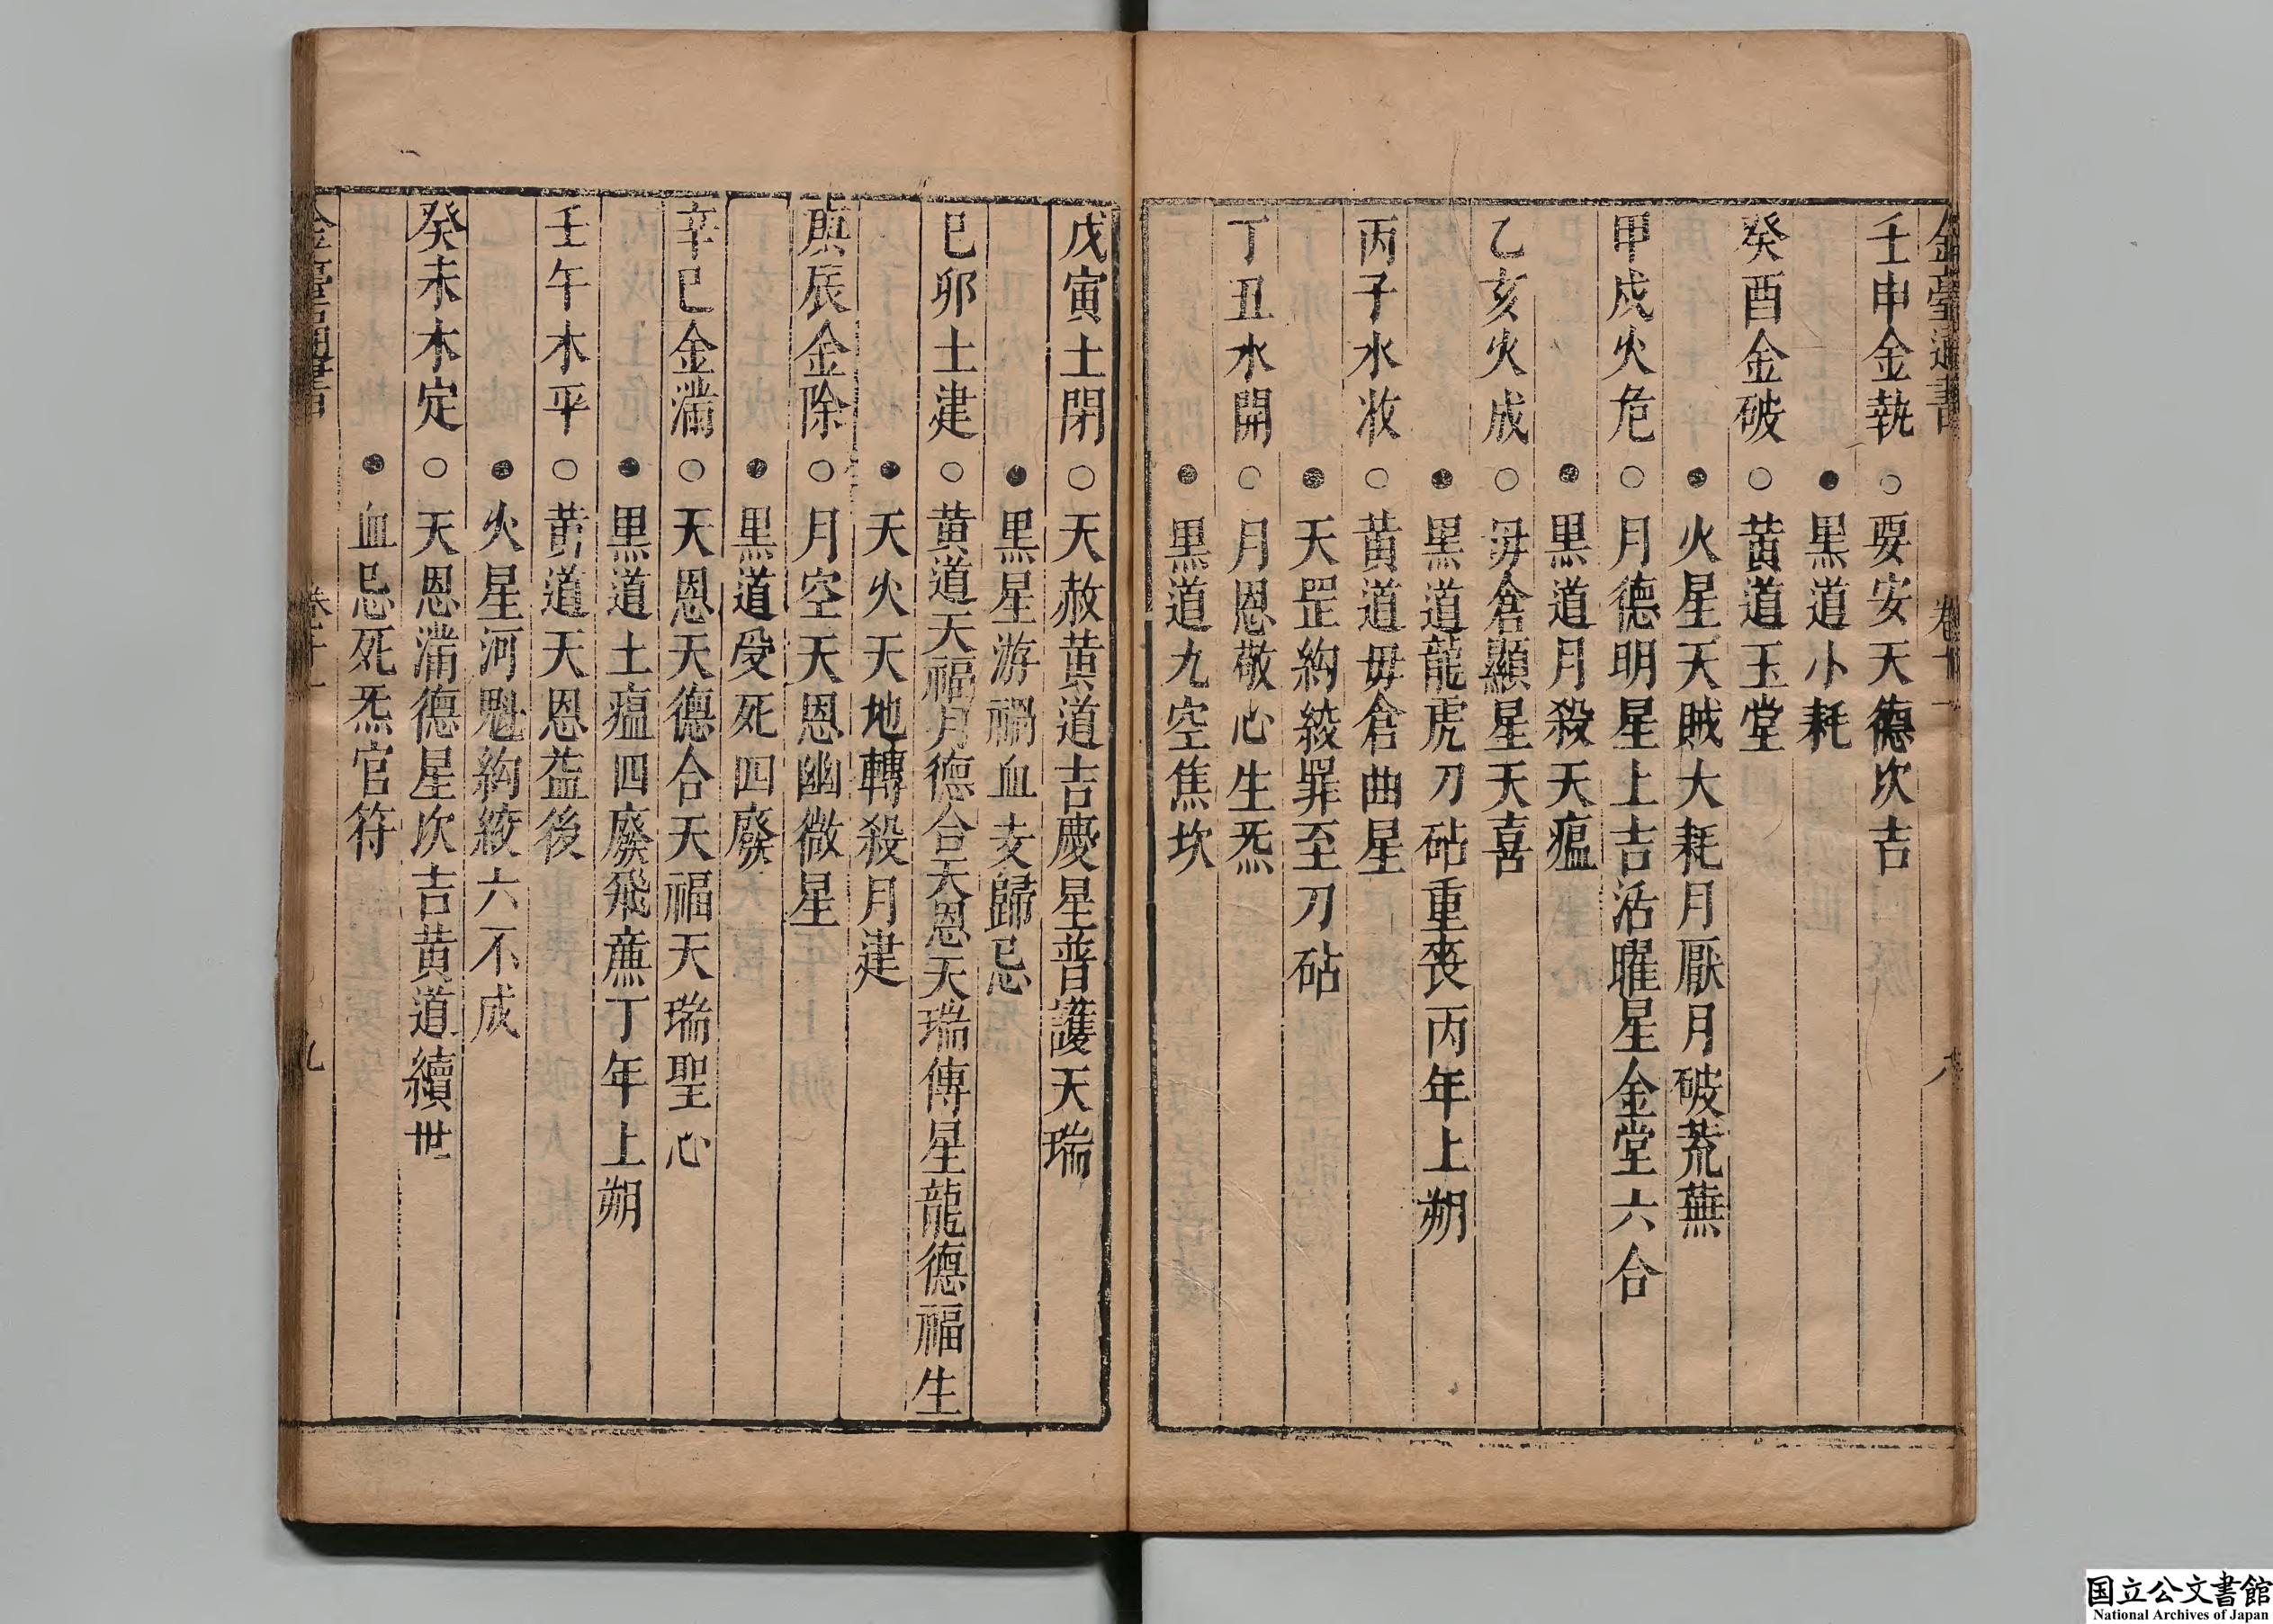 金臺通書 卷十一 八
壬申金執○要安天德次吉
●黒道小耗
癸酉金破○黃道玉堂
●火星天賊大耗月厭月破荒蕪
甲戍火危○月德明星上吉活曜星金堂六合
●黒道月殺天瘟
乙亥火成○毋倉顯星天喜
●黒道龍虎刀砧重喪丙年上朔
丙子水收○黃道毋倉曲星
●天罡絇絞罪至刀砧
丁丑水開○月恩敬心生炁
●黒道九空焦坎
戊寅土閉○天赦黃道吉慶星普護天瑞
●黒星游禍血支歸忌
巳卯土建○黃道天福月德合天恩天瑞傳星龍德福生
●天火天地轉殺月建
庚辰金除○月空天恩幽微星
●黒道受死四廢
辛巳金滿○天恩天德合天福天瑞聖心
●黒道土瘟四廢飛廉丁年上朔
壬午木平○黃道天恩益後
●火星河魁絇絞六不成
癸未木定○天恩滿德星次吉黃道續世
●血忌死炁官符
金臺通書 卷十一 九
国立公文書館
National Archives of Japan